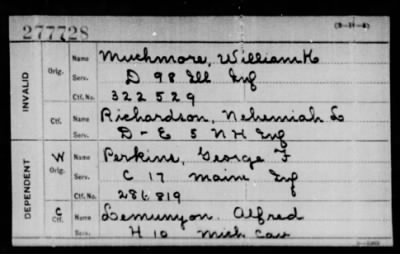 277728
(3-11-4)
INVALID
Orig.
Name
Muchmore, William H
Serv.
D 98 Ill Inf
Ctf. No.
322529
Ctf.
Name
Richardson, Nehemiah L
Serv.
D - E 5 NH Inf
DEPENDENT
W
Orig.
Name
Perkins, George F
Serv.
C 17 Maine Inf
Ctf. No.
286819
C
Ctf.
Name
Lemunyon. Alfred
Serv.
H 10 Mich Cav